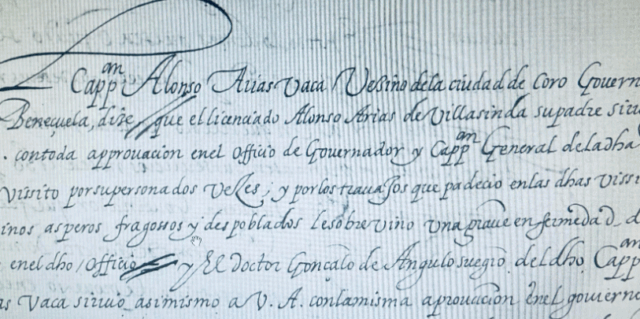 Cappan Alonso Arias Vaca Vesino dela ciudad de Coro Govern
Beneçuela, dize que el licenciado Alonso Arias de Villasinda su padre siru
. con toda aprouacion en el officio de Governador y Cappan General de la dha
Vissito por su persona dos vezes; y por los trauajos que padecio en las dhas vissi
inos asperos fragossos y despoblados le sobrevino una graue enfermedad d
en el dho officio y El Doctor Gonçalo de Angulo suegro del dho Cappan
as Vaca siruio asimismo a V. A. con la misma aprouacion en el gouierno